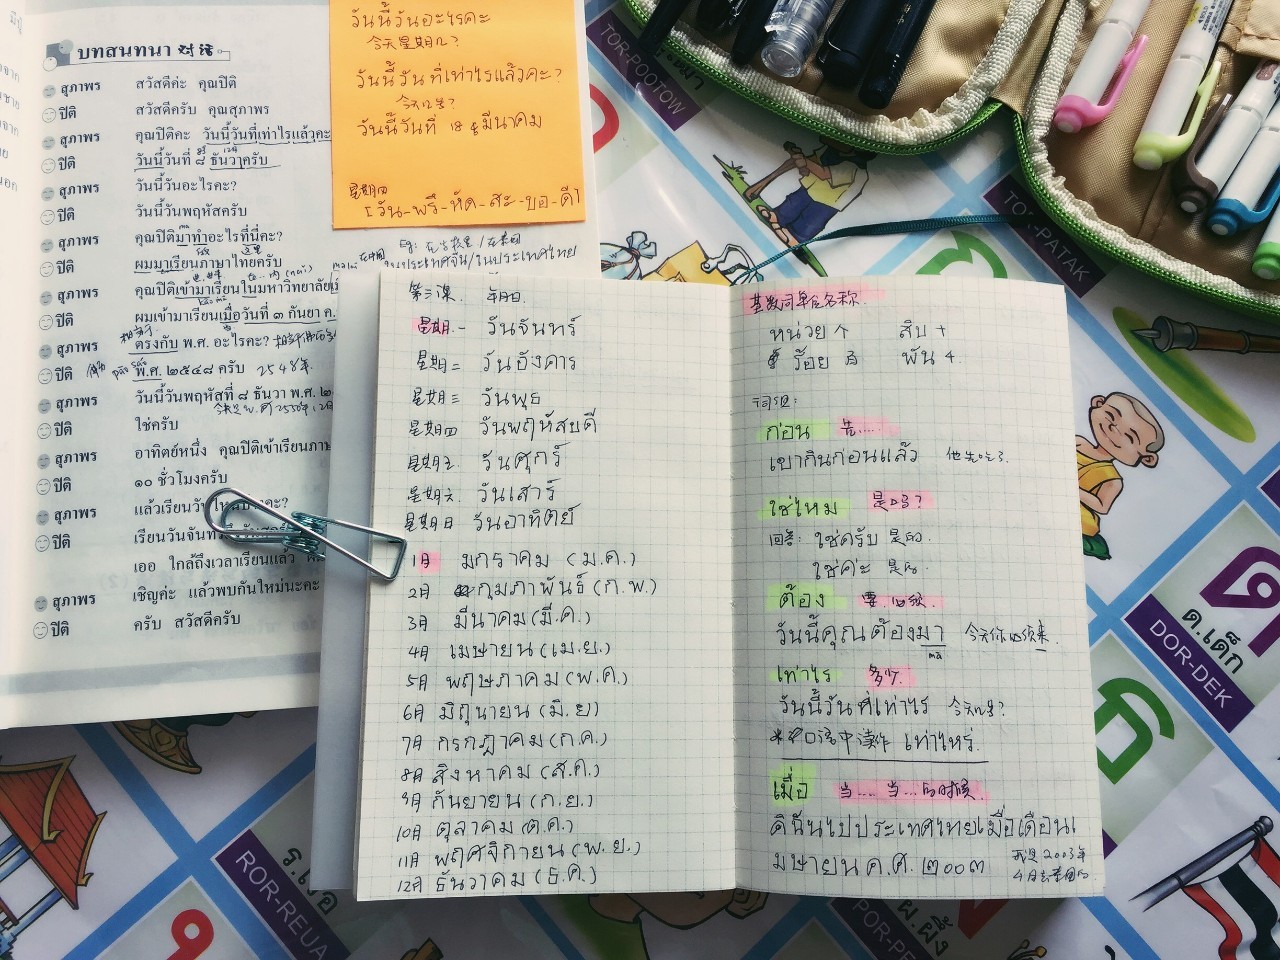 บทสนทนา 对话
สุภาพร สวัสดีค่ะ คุณปิติ
ปิติ สวัสดีครับ คุณสุภาพร
สุภาพร คุณปิติคะ วันนี้วันที่เท่าไรแล้วคะ
ปิติ วันนี้วันที่ ๘ ธันวาครับ
สุภาพร วันนี้วันอะไรคะ?
ปิติ วันนี้วันพฤหัสครับ
สุภาพร คุณปิติมาทำอะไรที่นี่คะ?
ปิติ ผมมาเรียนภาษาไทยครับ
สุภาพร คุณปิติเข้ามาเรียนในมหาวิทยาลัย
ปิติ ผมเข้ามาเรียนเมื่อวันที่ ๓ กันยา ค.
สุภาพร ตรงกับ พ.ศ. อะไรคะ?
ปิติ พ.ศ. ๒๕๔๘ ครับ 2548年
สุภาพร วันนี้วันพฤหัสที่ ๘ ธันวา พ.ศ.
ปิติ ใช่ครับ
สุภาพร อาทิตย์หนึ่ง คุณปิติเข้าเรียนภาษา
ปิติ ๑๐ ชั่วโมงครับ
สุภาพร แล้วเรียนวันไหนบ้างคะ?
ปิติ เรียนวันจันทร์
เออ ใกล้ถึงเวลาเรียนแล้ว
สุภาพร เชิญค่ะ แล้วพบกันใหม่นะคะ
ปิติ ครับ สวัสดีครับ
วันนี้วันอะไรคะ
今天星期几?
วันนี้วันที่เท่าไรแล้วคะ?
今天几号?
วันนี้วันที่ 18 มีนาคม
星期四
[วัน-พรึ-หัด-สะ-บอ-ดี]
ในประเทศจีน/ในประเทศไทย
第三课. 年月日.
星期一 วันจันทร์
星期二 วันอังคาร
星期三 วันพุธ
星期四 วันพฤหัสบดี
星期五. วันศุกร์
星期六. วันเสาร์
星期日 วันอาทิตย์
1月 มกราคม (ม.ค.)
2月 กุมภาพันธ์ (ก.พ.)
3月 มีนาคม (มี.ค.)
4月 เมษายน (เม.ย.)
5月 พฤษภาคม (พ.ค.)
6月 มิถุนายน (มิ.ย)
7月 กรกฎาคม (ก.ค.)
8月 สิงหาคม (ส.ค.)
9月 กันยายน (ก.ย.)
10月 ตุลาคม (ต.ค.)
11月 พฤศจิกายน (พ.ย.)
12月 ธันวาคม (ธ.ค.)
基数词单位名称.
หน่วย 个 สิบ 十
ร้อย 百 พัน 千.
词组:
ก่อน 先......
เขากินก่อนแล้ว 他先吃了.
ใช่ไหม 是吗?
回答: ใช่ครับ 是的.
ใช่ค่ะ 是的.
ต้อง 要. 必须.
วันนี้คุณต้องมา 今天你必须来.
mā
เท่าไร 多少.
วันนี้วันที่เท่าไร 今天几号?
*在口语中读作 เท่าไหร่.
เมื่อ 当.... 当....的时候.
ดิฉันไปประเทศไทยเมื่อเดือนเ
มษายน ค.ศ. ๒๐๐๓ 我是2003年
4月去泰国的.
TOR-POOTOW
TOR-PATAK
ด.เด็ก
DOR-DEK
ร.เรือ
ROR-REUA
ผ.ผึ้ง
POR-PE